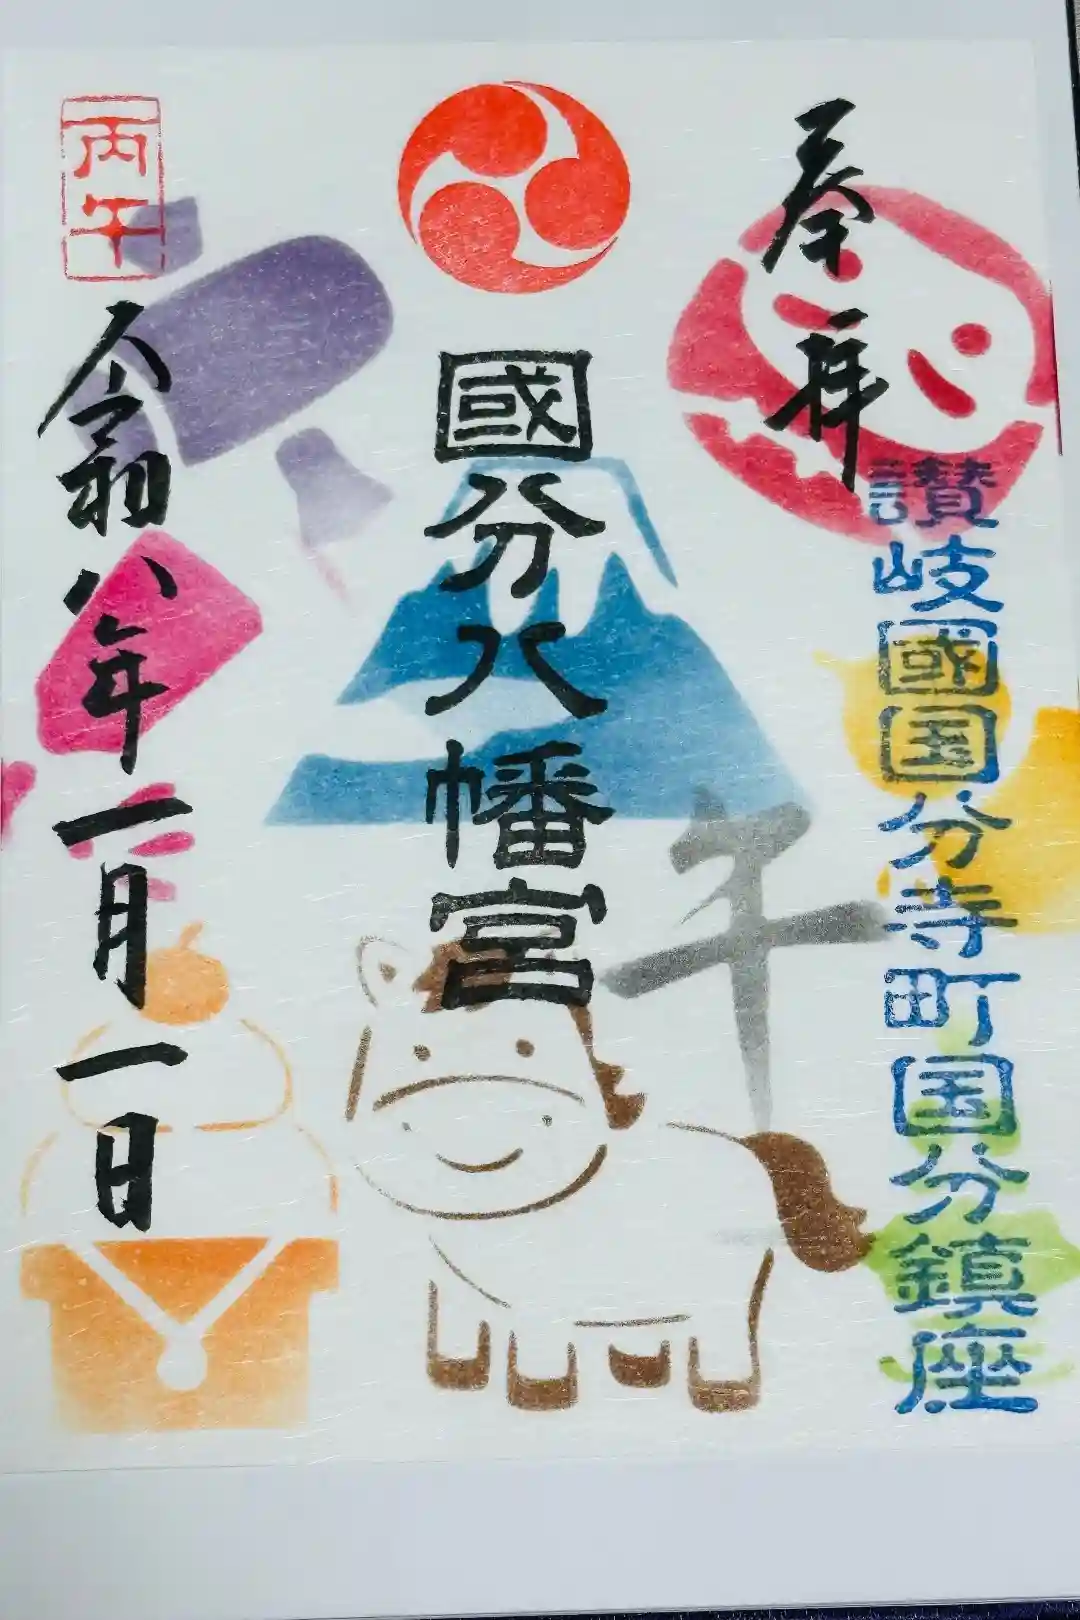 奉拝
讃岐國国分寺町国分鎮座
國分八幡宮
午
丙午
令和八年一月一日